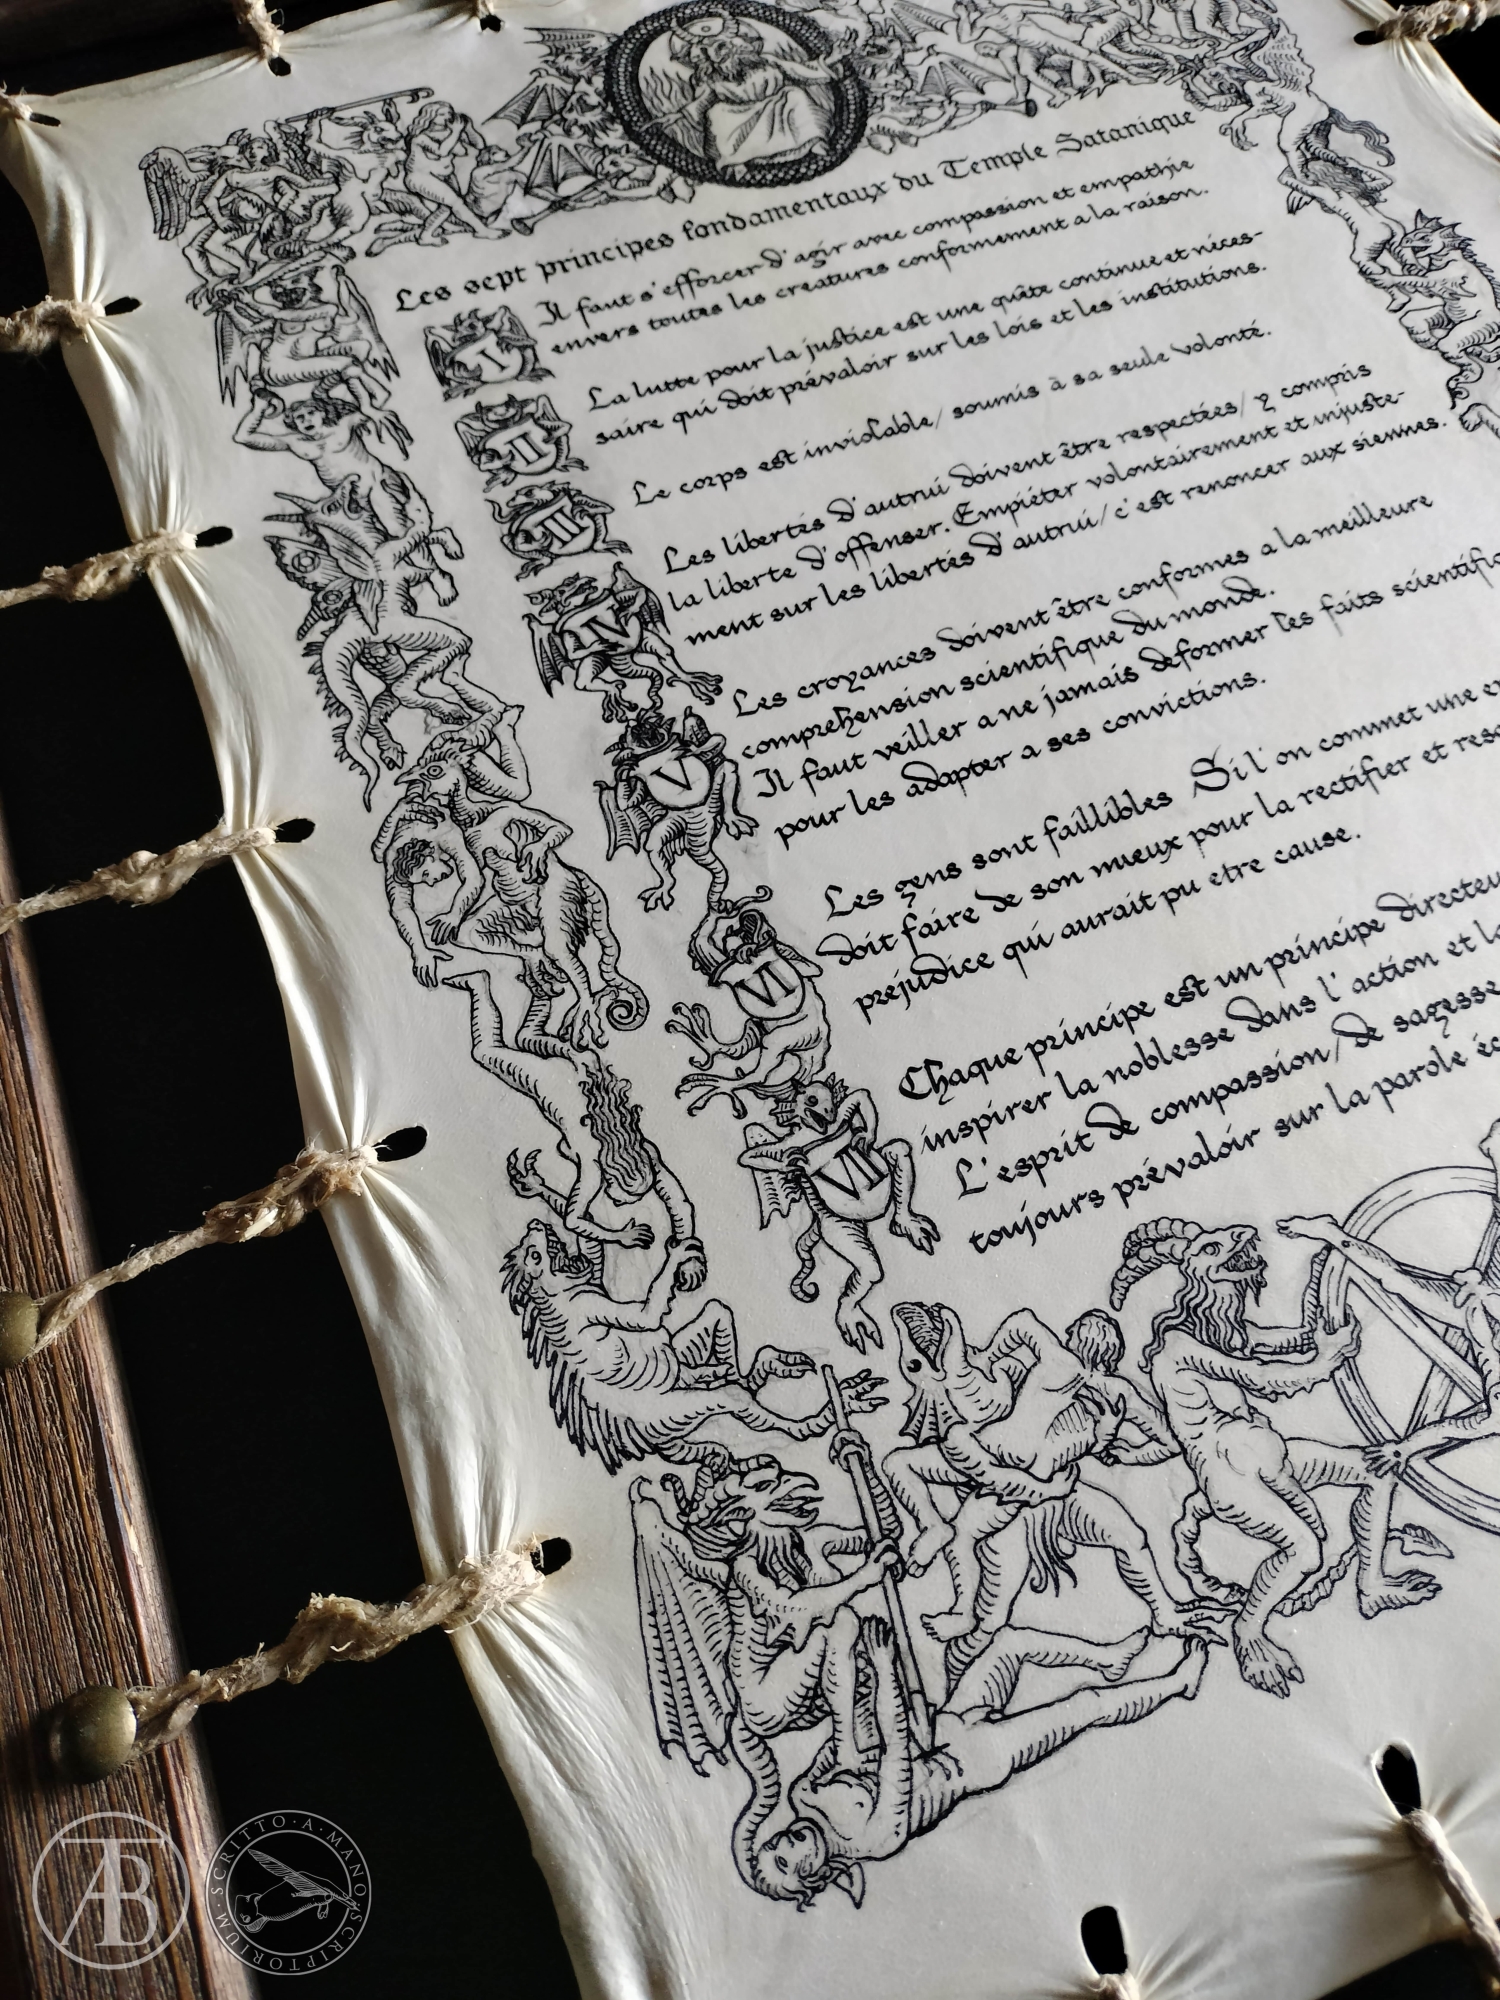 Les sept principes fondamentaux du Temple Satanique
I
Il faut s'efforcer d'agir avec compassion et empathie
envers toutes les creatures conformement a la raison.
II
La lutte pour la justice est une quête continue et néces-
saire qui doit prévaloir sur les lois et les institutions.
III
Le corps est inviolable/ soumis à sa seule volonté.
IV
Les libertés d'autrui doivent être respectées/ y compris
la liberte d'offenser. Empiéter volontairement et injuste-
ment sur les libertés d'autrui/ c'est renoncer aux siennes.
V
Les croyances doivent être conformes a la meilleure
comprehension scientifique du monde.
Il faut veiller a ne jamais deformer les faits
pour les adapter a ses convictions.
VI
Les gens sont faillibles Si l'on commet une
doit faire de son mieux pour la rectifier et
préjudice qui aurait pu etre cause.
VII
Chaque principe est un principe
inspirer la noblesse dans l'action et
L'esprit de compassion/ de sagesse
toujours prévaloir sur la parole
ATB
SCRITTO·A·MANO·SCRIPTORIUM·